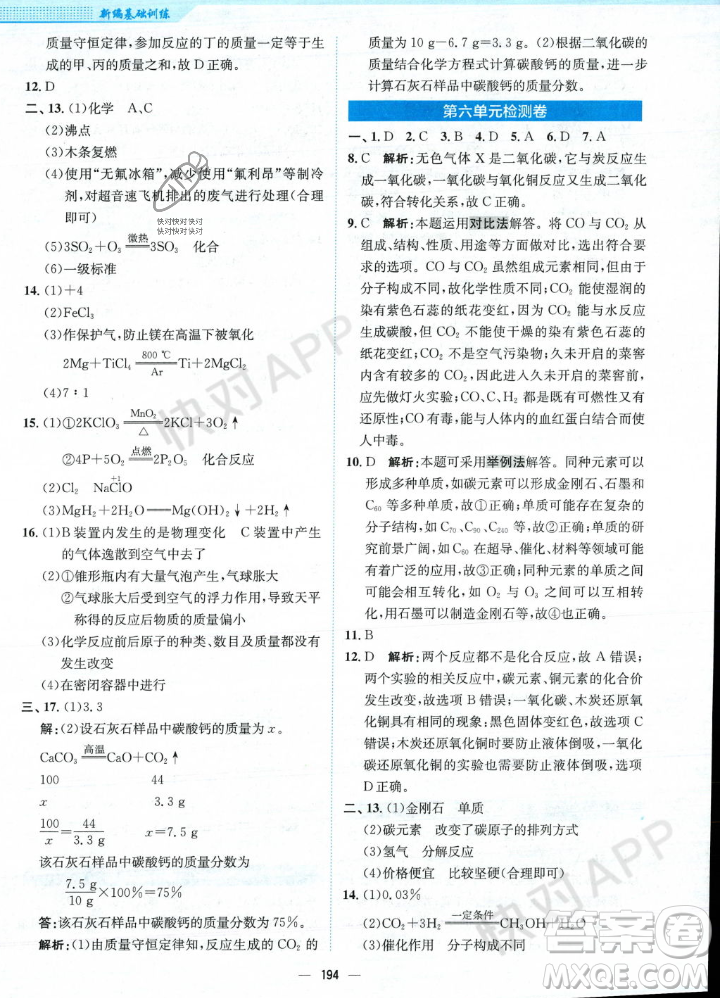 新编基础训练
质量守恒定律，参加反应的丁的质量一定等于生
成的甲、丙的质量之和，故 D 正确。
12. D
二、13. (1)化学 A、C
(2)沸点
(3)木条复燃
(4)使用“无氟冰箱”，减少使用“氟利昂”等制冷
剂，对超音速飞机排出的废气进行处理(合理
即可)
(5)3SO₂+O₃ 微热 3SO₃ 化合
(6)一级标准
14. (1)+4
(2)FeCl₃
(3)作保护气，防止镁在高温下被氧化
2Mg+TiCl₄ 800 ℃ Ar Ti+2MgCl₂
(4)7∶1
15. (1)①2KClO₃ MnO₂ △ 2KCl+3O₂↑
②4P+5O₂ 点燃 2P₂O₅ 化合反应
(2)Cl₂ NaClO +1
(3)MgH₂+2H₂O══Mg(OH)₂↓+2H₂↑
16. (1)B 装置内发生的是物理变化 C 装置中产生
的气体逸散到空气中去了
(2)①锥形瓶内有大量气泡产生，气球胀大
②气球胀大后受到空气的浮力作用，导致天平
称得的反应后物质的质量偏小
(3)化学反应前后原子的种类、数目及质量没有
发生改变
(4)在密闭容器中进行
三、17. (1)3.3
解：(2)设石灰石样品中碳酸钙的质量为 x。
CaCO₃ 高温 CaO+CO₂↑
100 44
x 3.3 g
100/x = 44/3.3 g x=7.5 g
该石灰石样品中碳酸钙的质量分数为
7.5 g/10 g ×100%=75%
答：该石灰石样品中碳酸钙的质量分数为 75%。
解析：(1)由质量守恒定律知，反应生成的 CO₂ 的
质量为 10 g−6.7 g=3.3 g。(2)根据二氧化碳的
质量结合化学方程式计算碳酸钙的质量，进一步
计算石灰石样品中碳酸钙的质量分数。
第六单元检测卷
一、1. D 2. C 3. B 4. D 5. A 6. D 7. A
8. C 解析：无色气体 X 是二氧化碳，它与炭反应生
成一氧化碳，一氧化碳与氧化铜反应又生成二氧
化碳，符合转化关系，故 C 正确。
9. C 解析：本题运用对比法解答。将 CO 与 CO₂ 从
组成、结构、性质、用途等方面做对比，选出符合要
求的选项。CO 与 CO₂ 虽然组成元素相同，但由于
分子构成不同，故化学性质不同。CO₂ 能使湿润的
染有紫色石蕊的纸花变红，是因为 CO₂ 能与水反应
生成碳酸，CO₂ 不能使干燥的染有紫色石蕊的纸花
变红；CO₂ 不是空气污染物；久未开启的菜窖
内含有较多的二氧化碳，故进入久未开启的菜窖
应先做灯火实验；CO、C、H₂ 都有可燃性和还
原性；CO 有毒，能与人体内的血红蛋白结合而使
人中毒。
10. D 解析：本题可采用举例法解答。同种元素可以
形成多种单质，如碳元素可以形成金刚石、石墨和
C₆₀ 等多种单质，故①正确；单质可能存在复杂的
分子结构，如 C₇₀、C₉₀、C₂₄₀ 等，故②正确；单质的研
究前景广阔，如 C₆₀ 在超导、催化、材料等领域得
到广泛的应用，故⑥正确；同种元素的不同单质之
间可能会相互转化，如 O₂ 与 O₃ 可以相互转
化，用石墨可以制造金刚石等，故④正确。
11. B
12. D 解析：两个反应都不是化合反应，故 A 错误；两
个实验的相关反应中，碳元素、铜元素的化合价都
发生了改变，故选项 B 错误；一氧化碳、木炭还原氧
化铜具有相同的现象：黑色固体变为红色，故选项
C 错误；木炭还原氧化铜时要防止液体倒吸，一氧
化碳还原氧化铜的实验也需要防止液体倒吸，故选
项 D 正确。
二、13. (1)金刚石 单质
(2)碳元素 改变了碳原子的排列方式
(3)氢气 分解反应
(4)可燃性 便于运输 比较坚硬(合理即可)
14. (1)0.03%
(2)CO₂+3H₂ 一定条件 CH₃OH+H₂O
(3)催化作用 分子构成不同
194
快对快对快对
快对快对快对
快对APP
快对APP
答案圈
MXQE.COM